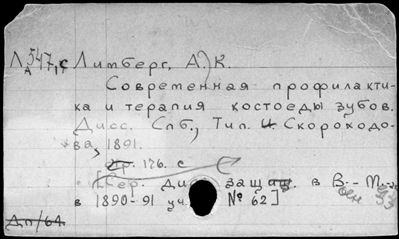 Лимберг, А. К.
Современная профилакти-
ка и терапия костоеды зубов.
Дисс. Спб., Тип. И. Скороходо-
ва, 1891.
176. с
[Сер. защищ. в В.-М.
в 1890-91 уч. № 62]
Дп/64